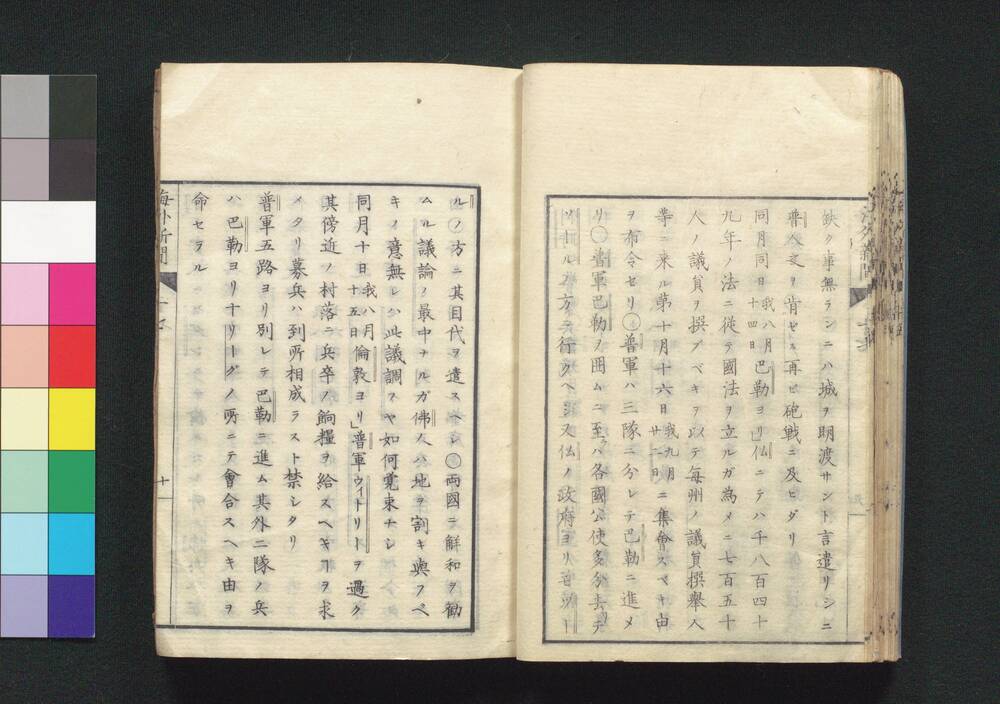 欽ク事無ランニハ城ヲ明渡サント言遣リシニ
普人文ヲ肯セス再ヒ砲戦ニ及ヒタリ
同月同日我八月十四日巴勒ヨリ」仏ニテハ千八百四十
九年ノ法ニ從テ國法ヲ立ルガ為メニ七百五十
人ノ議員ヲ撰フベキヲ以テ毎州ノ議員撰舉人
等ニ來ル第十月十六日我九月廿二日ニ集會スベキ由
ヲ布令セリ〇普軍ハ三隊ニ分レテ巴勒ニ進メ
リ〇普軍巴勒ヲ囲ムニ至ラハ各國公使多分去テ
ソールノ方ニ行クヘシ又仏ノ政府ヨリ
ルノ方ニ其目代ヲ遣スヘシ〇両國ニ解和ヲ勧
ムル議論ノ最中ナルガ佛人ハ地ヲ割キ與フベ
キノ意無レハ此議調フヤ如何寛束ナシ
同月十日我八月十五日倫敦ヨリ」普軍ウィトリートヲ過ク
其傍近ノ村落ニ兵卒ノ餉糧ヲ給スヘキ事ヲ求
メタリ募兵ハ到所相成ラスト禁シタリ
普軍五路ヨリ別レテ巴勒ニ進ム其外二隊ノ兵
ハ巴勒ヨリ十リーグノ所ニテ會合スヘキ由ヲ
命セラル
海外新聞
十